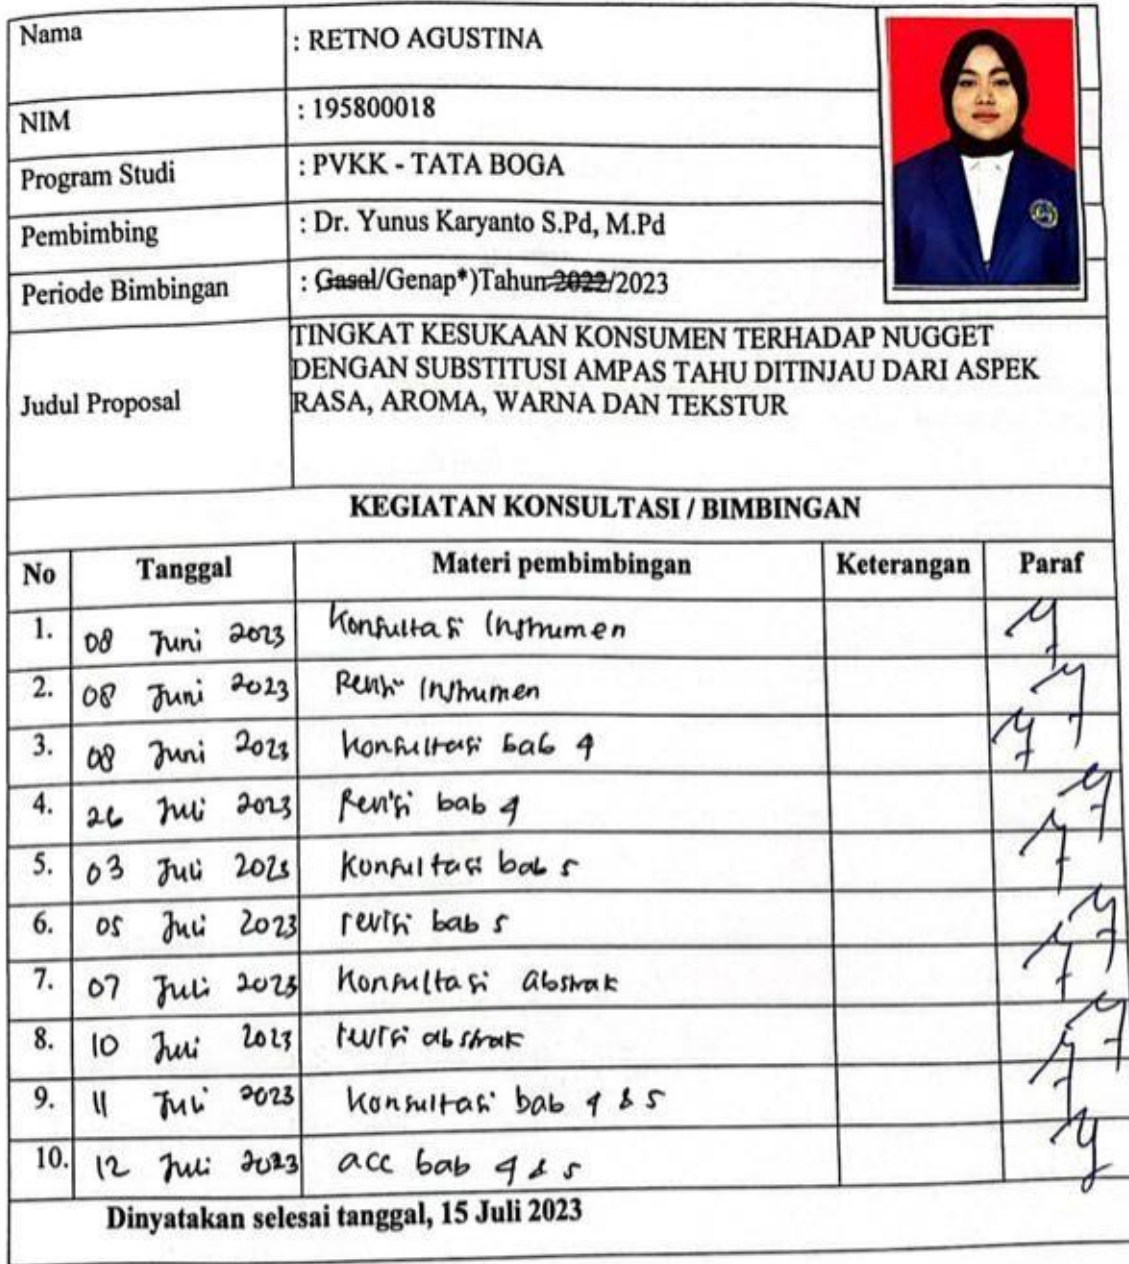 Nama : RETNO AGUSTINA
NIM : 195800018
Program Studi : PVKK - TATA BOGA
Pembimbing : Dr. Yunus Karyanto S.Pd, M.Pd
Periode Bimbingan : Gasal/Genap*)Tahun 2022/2023
TINGKAT KESUKAAN KONSUMEN TERHADAP NUGGET
DENGAN SUBSTITUSI AMPAS TAHU DITINJAU DARI ASPEK
Judul Proposal RASA, AROMA, WARNA DAN TEKSTUR
KEGIATAN KONSULTASI / BIMBINGAN
No Tanggal Materi pembimbingan Keterangan Paraf
1. 08 Juni 2023 Konsultasi Instrumen
2. 08 Juni 2023 Revisi Instrumen
3. 08 Juni 2023 Konsultasi bab 4
4. 26 Juli 2023 Revisi bab 4
5. 03 Juli 2023 Konsultasi bab 5
6. 05 Juli 2023 revisi bab 5
7. 07 Juli 2023 Konsultasi abstrak
8. 10 Juli 2023 revisi abstrak
9. 11 Juli 2023 Konsultasi bab 4 & 5
10. 12 Juli 2023 acc bab 4 & 5
Dinyatakan selesai tanggal, 15 Juli 2023